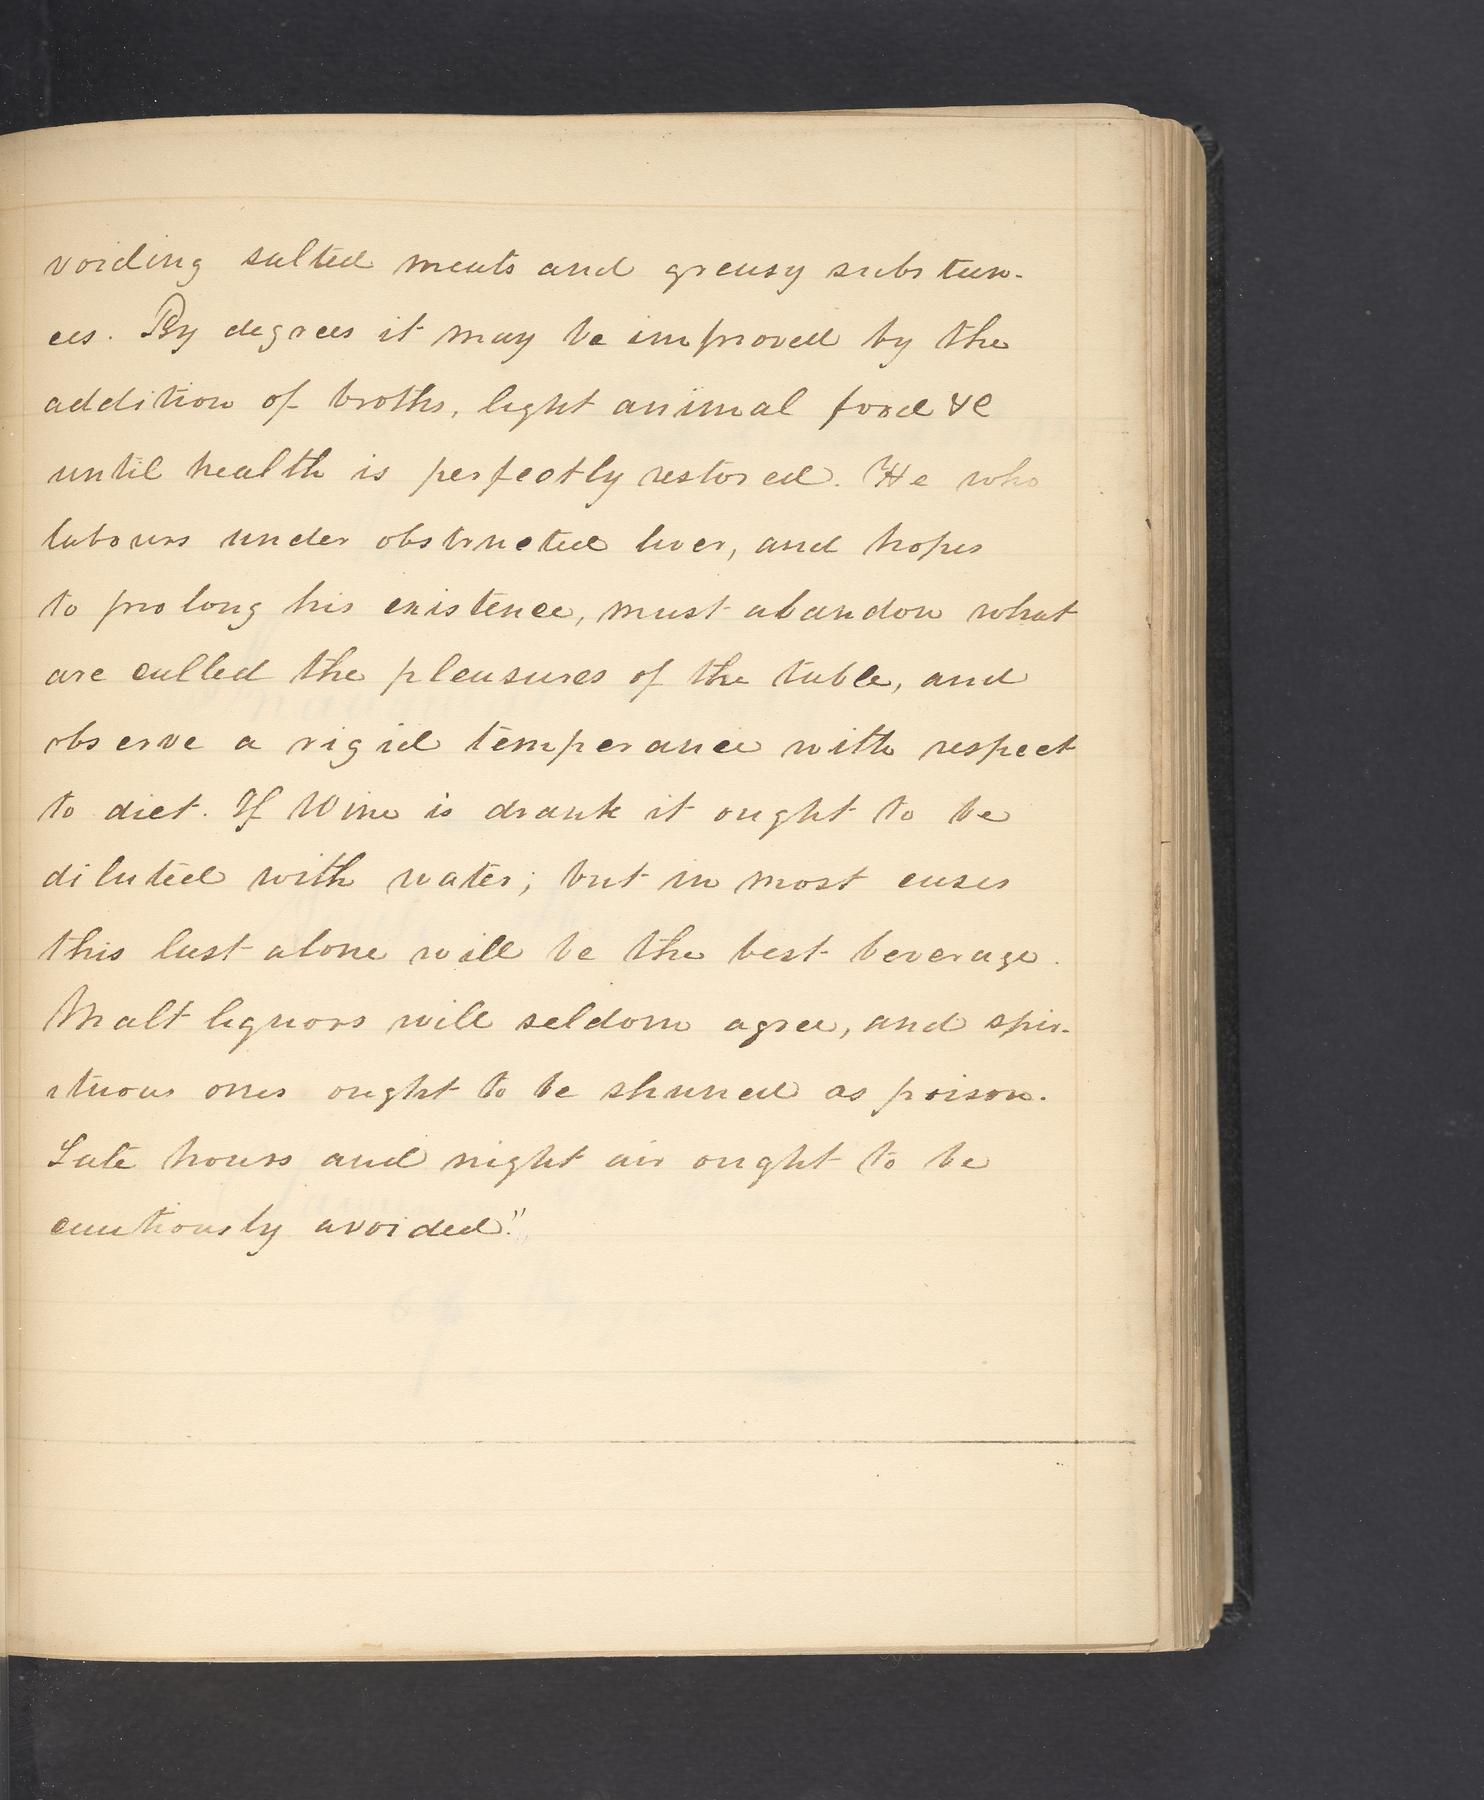 voiding salted meats and greasy substan-
ces. By degrees it may be improved by the
addition of broths, light animal food &c
until health is perfectly restored. He who
labours under obstructed liver, and hopes
to prolong his existence, must abandon what
are called the pleasures of the table, and
observe a rigid temperance with respect
to diet. If Wine is drank it ought to be
diluted with water; but in most cases
this last alone will be the best beverage.
Malt liquors will seldom agree, and spir-
ituous ones ought to be shunned as poison.
Late hours and night air ought to be
cautiously avoided."